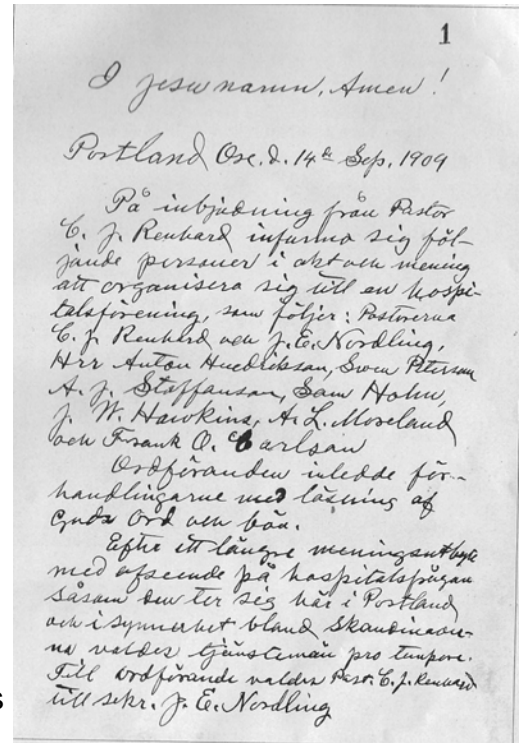 1
I Jesu namn, Amen!
Portland Ore. d. 14de Sep. 1909
På inbjudning från Pastor
C. J. Renhard infunno sig föl-
jande personer i akt och mening
att organisera sig till en hospi-
talsförening, som följer: Pastorerna
C. J. Renhard och J. E. Nordling,
Hrr Anton Hendrikson, Sven Peterson
A. J. Stoffanson, Sam Holm,
J. W. Hawkins, A. L. Moreland
och Frank O. Carlson
Ordföranden inledde för-
handlingarne med läsning af
Guds Ord och bön.
Efter ett längre meningsutbyte
med afseende på hospitalsfrågan
såsom den ter sig här i Portland
och i synnerhet bland Skandinaver-
na valdes tjänstemän pro tempore.
Till ordförande valdes Past. C. J. Renhard
till sekr. J. E. Nordling
s